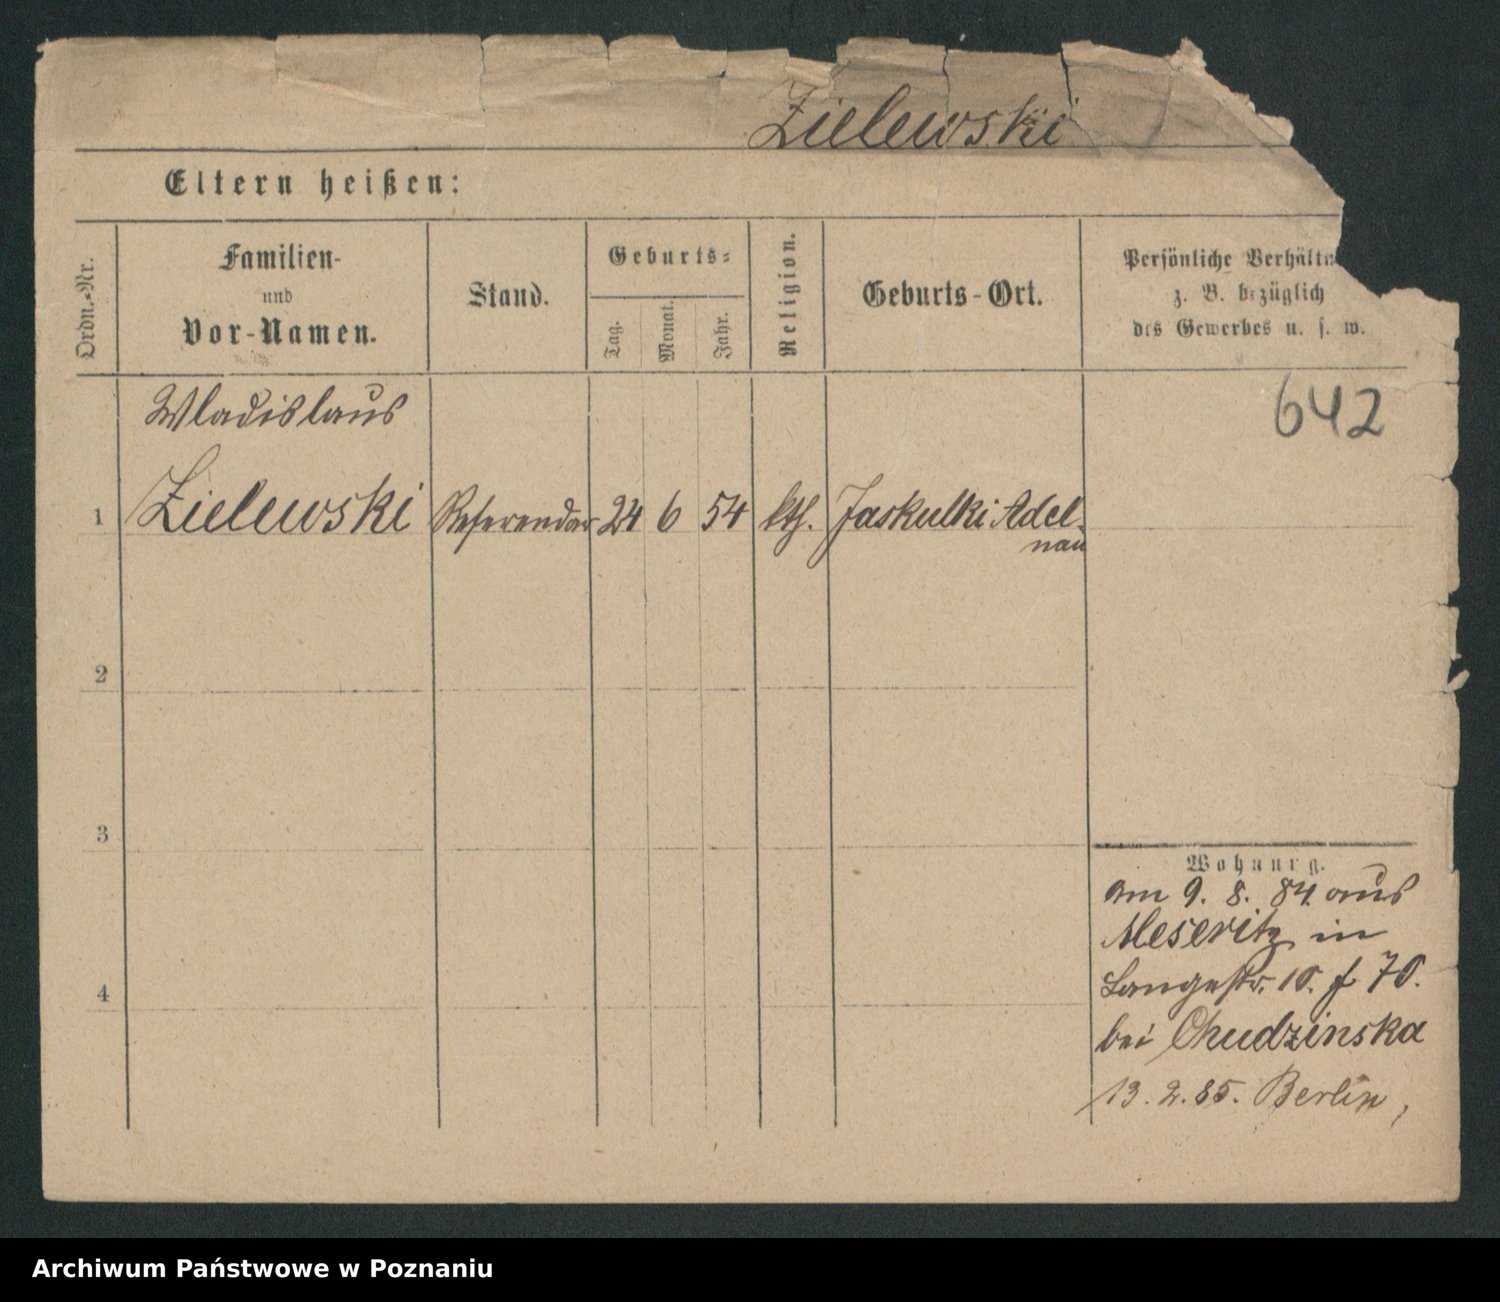 Zielewski
Eltern heißen:
Ordn.-Nr.
Familien-
und
Vor-Namen.
Stand.
Geburts-
Tag.
Monat.
Jahr.
Religion.
Geburts-Ort.
Persönliche Verhältn
z. B. bezüglich
des Gewerbes u. s. w.
642
Wladislaus
1 Zielewski Referendar 24 6 54 kth. Jaskulki Adel-
nau
2
3
4
Wohnung.
am 9. 8. 84 aus
Meseritz in
Langestr. 10. f 70.
bei Chudzinska
13. 2. 85. Berlin,
Archiwum Państwowe w Poznaniu